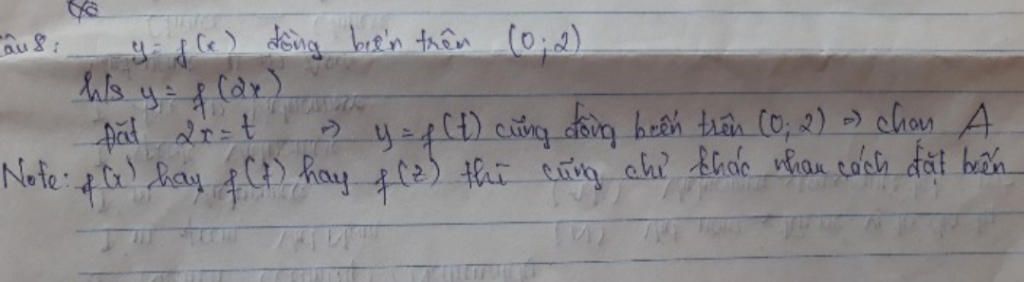 Câu 8: y = f(x) đồng biến trên (0; 2)
h/s y = f(2x)
Đặt 2x = t => y = f(t) cũng đồng biến trên (0; 2) => chọn A
Note: f(x) hay f(t) hay f(z) thì cũng chỉ khác nhau cách đặt biến